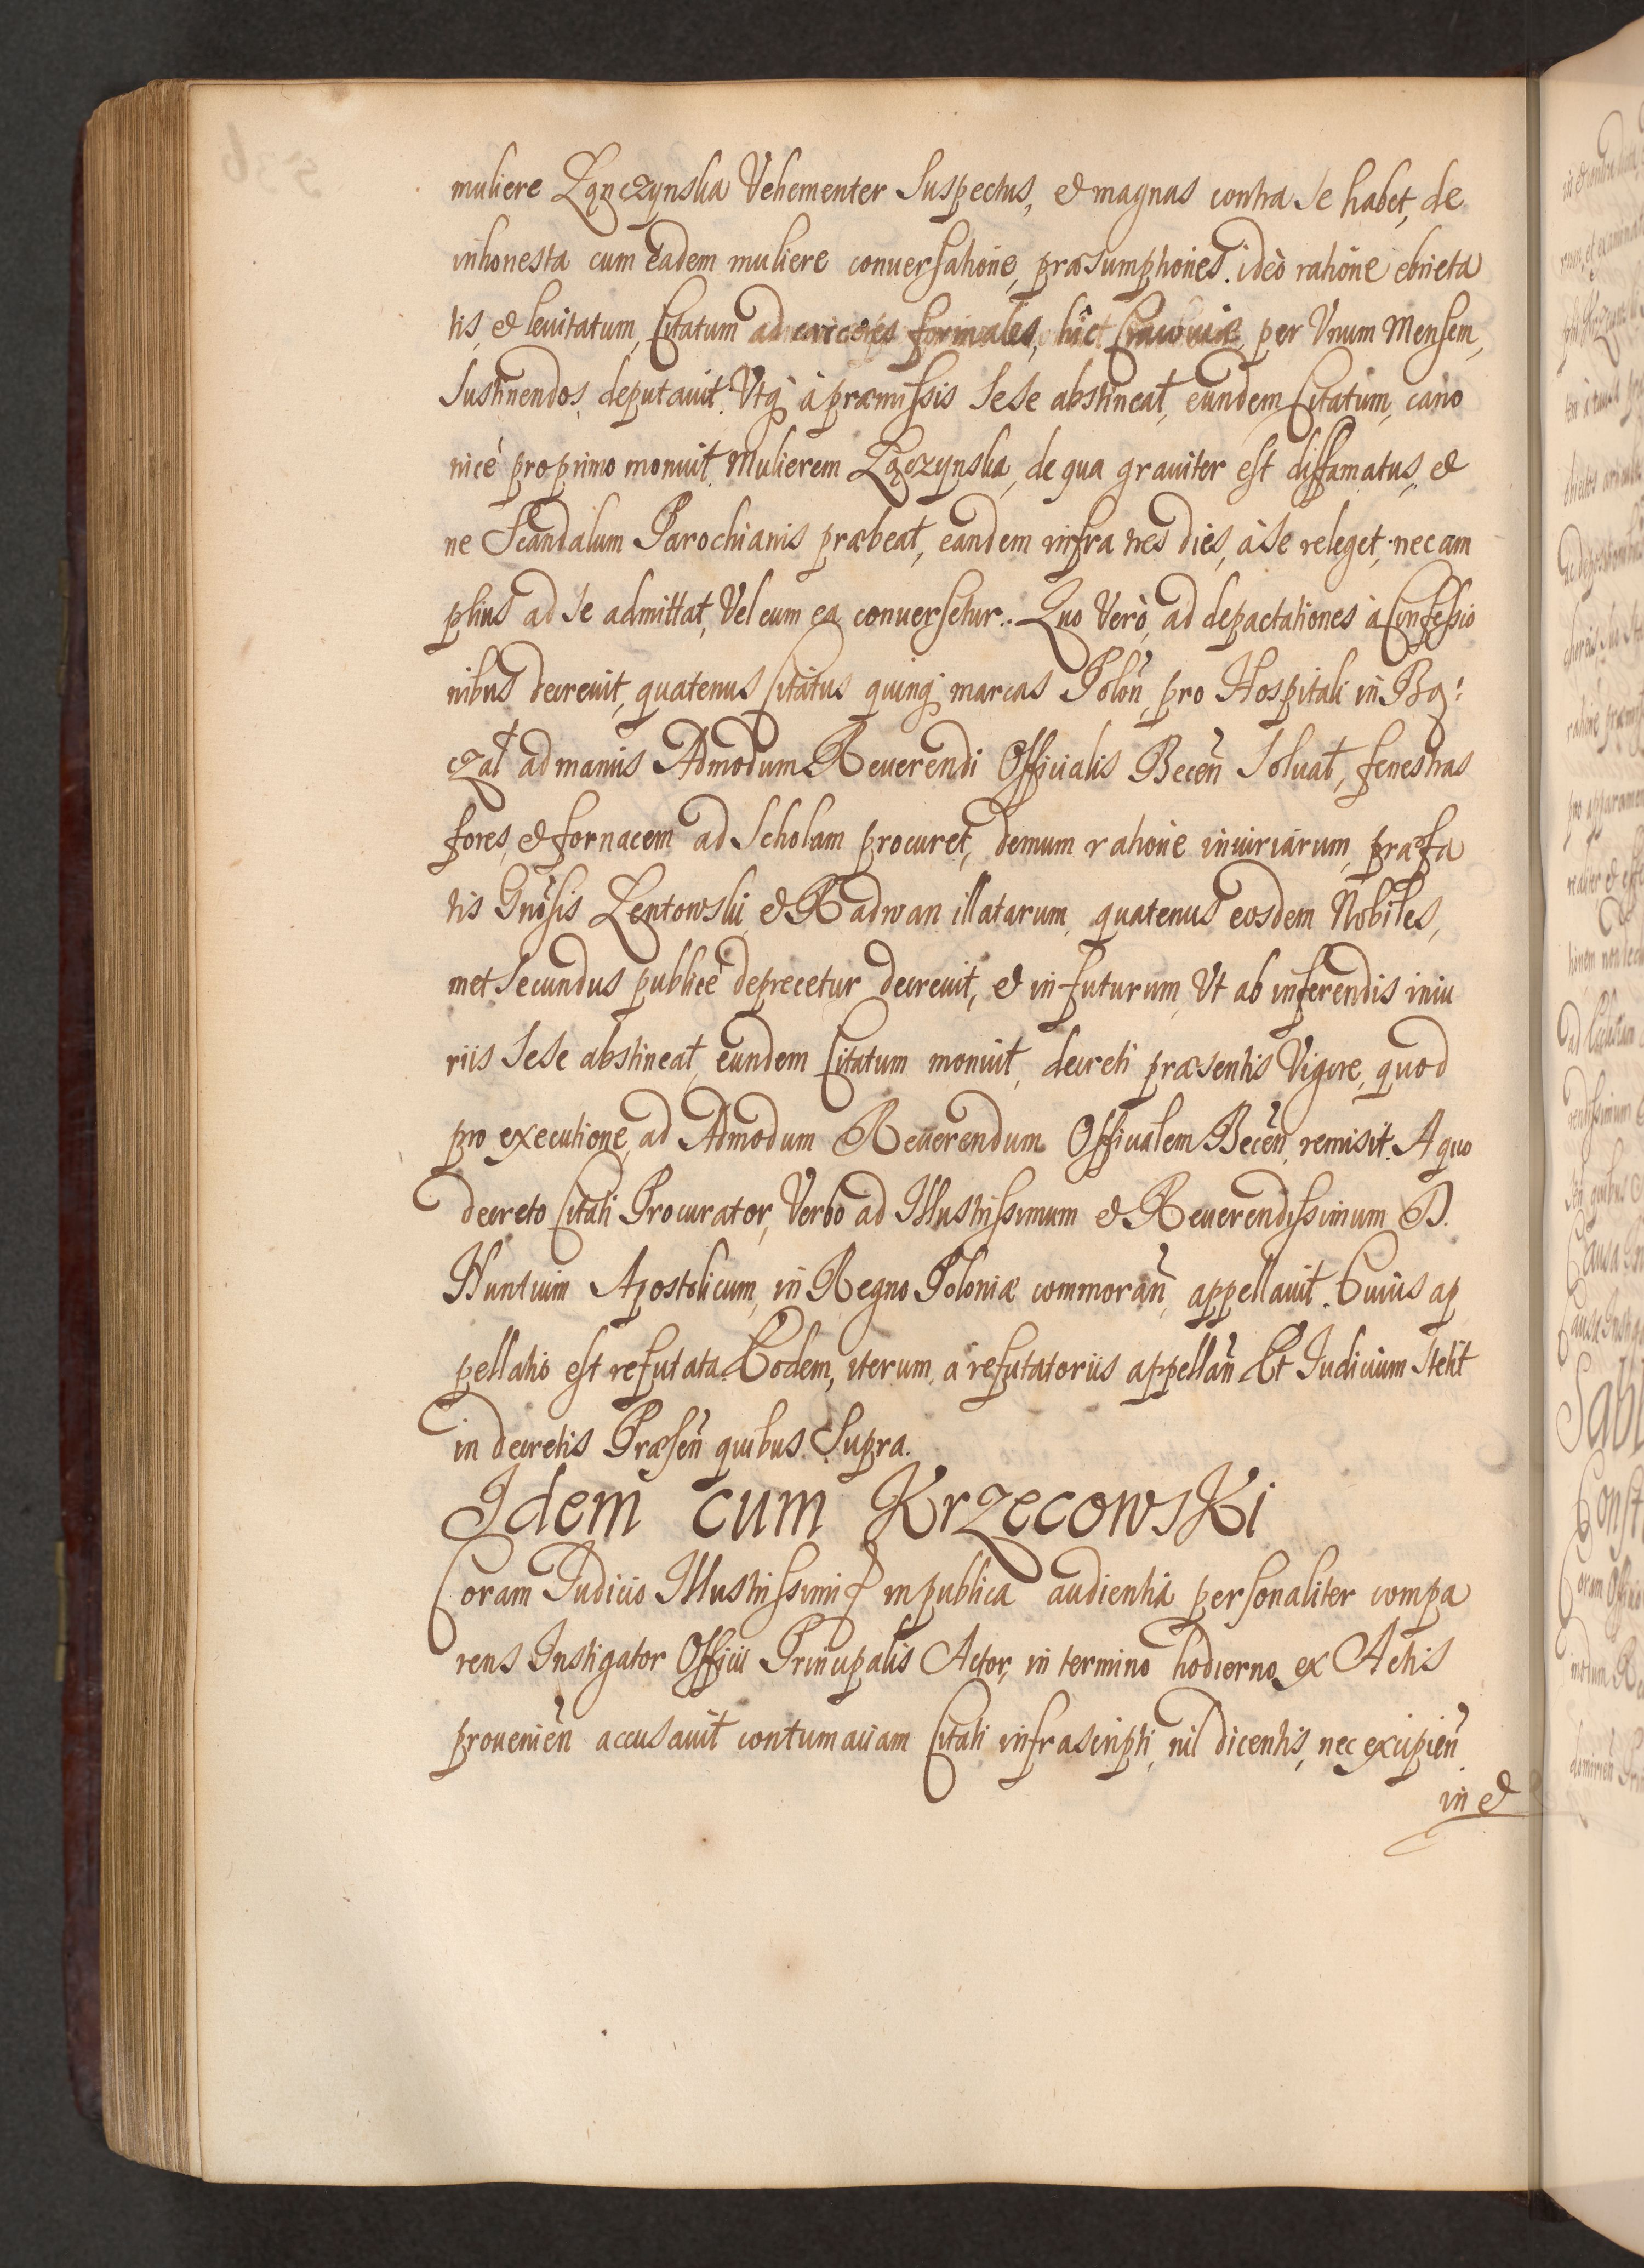 muliere Łączynska Vehementer Suspectus, & magnas contra Se habet, de
inhonesta cum eadem muliere conuersatione, præsumptiones. ideò ratione ebrieta
tis, & leuitatum, Citatum ad carceres formales, hic Cracouiæ, per Vnum Mensem,
Sustinendos, deputauit. Vtq̃ à præmissis Sese abstineat, eundem Citatum, cano
nicè pro primo monuit. Mulierem Łączynska, de qua grauiter est diffamatus, &
ne Scandalum Parochianis præbeat, eandem infra tres dies, à Se releget, nec am
plius ad Se admittat, Vel cum ea conuersetur. Quo Verò, ad depactationes à Confessio
nibus decreuit, quatenus Citatus quinq̃ marcas Polon̄, pro Hospitali in Bą:
czał ad manus Admodum Reuerendi Officialis Becen̄ Soluat, fenestras
fores, & fornacem ad Scholam procuret, demum ratione iniuriarum, præfa
tis Gnosis Lentowski, & Radwan illatarum, quatenus eosdem Nobiles,
met Secundus publicè deprecetur decreuit, & in futurum, Vt ab inferendis iniu
riis Sese abstineat, eundem Citatum monuit, decreti præsentis Vigore, quod
pro executione, ad Admodum Reuerendum Officialem Becen̄, remisit. A quo
decreto Citati Procurator, Verbo ad Illustrissimum & Reuerendissimum D.
Nuntium Apostolicum, in Regno Poloniæ commoran̄, appellauit. Cuius ap
pellatio est refutata. Eodem, iterum, à refutatoriis appellan̄. Et Iudicium Stetit
in decretis Præsen̄ quibus Supra.
Idem cum Krzecowski
Coram Iudicio Illustrissimi & in publica audientia personaliter compa
rens Instigator Officii Principalis Actor, in termino hodierno, ex Actis
prouenien̄ accusauit contumaciam Citati infrascripti, nil dicentis, nec excipien̄
in &